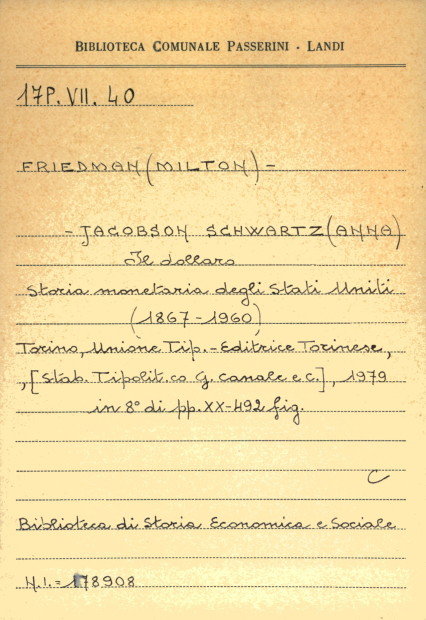 BIBLIOTECA COMUNALE PASSERINI - LANDI
17P. VII. 40
FRIEDMAN (MILTON) -
- JACOBSON SCHWARTZ (ANNA)
Il dollaro
Storia monetaria degli Stati Uniti
(1867-1960)
Torino, Unione Tip.-Editrice Torinese,
, [Stab. Tipolit.co G. Canale e c.], 1979
in 8° di pp. XX-492 fig.
C
Biblioteca di Storia Economica e Sociale
N.I. = 178908